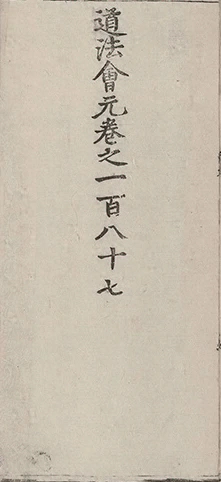 道法會元卷之一百八十七